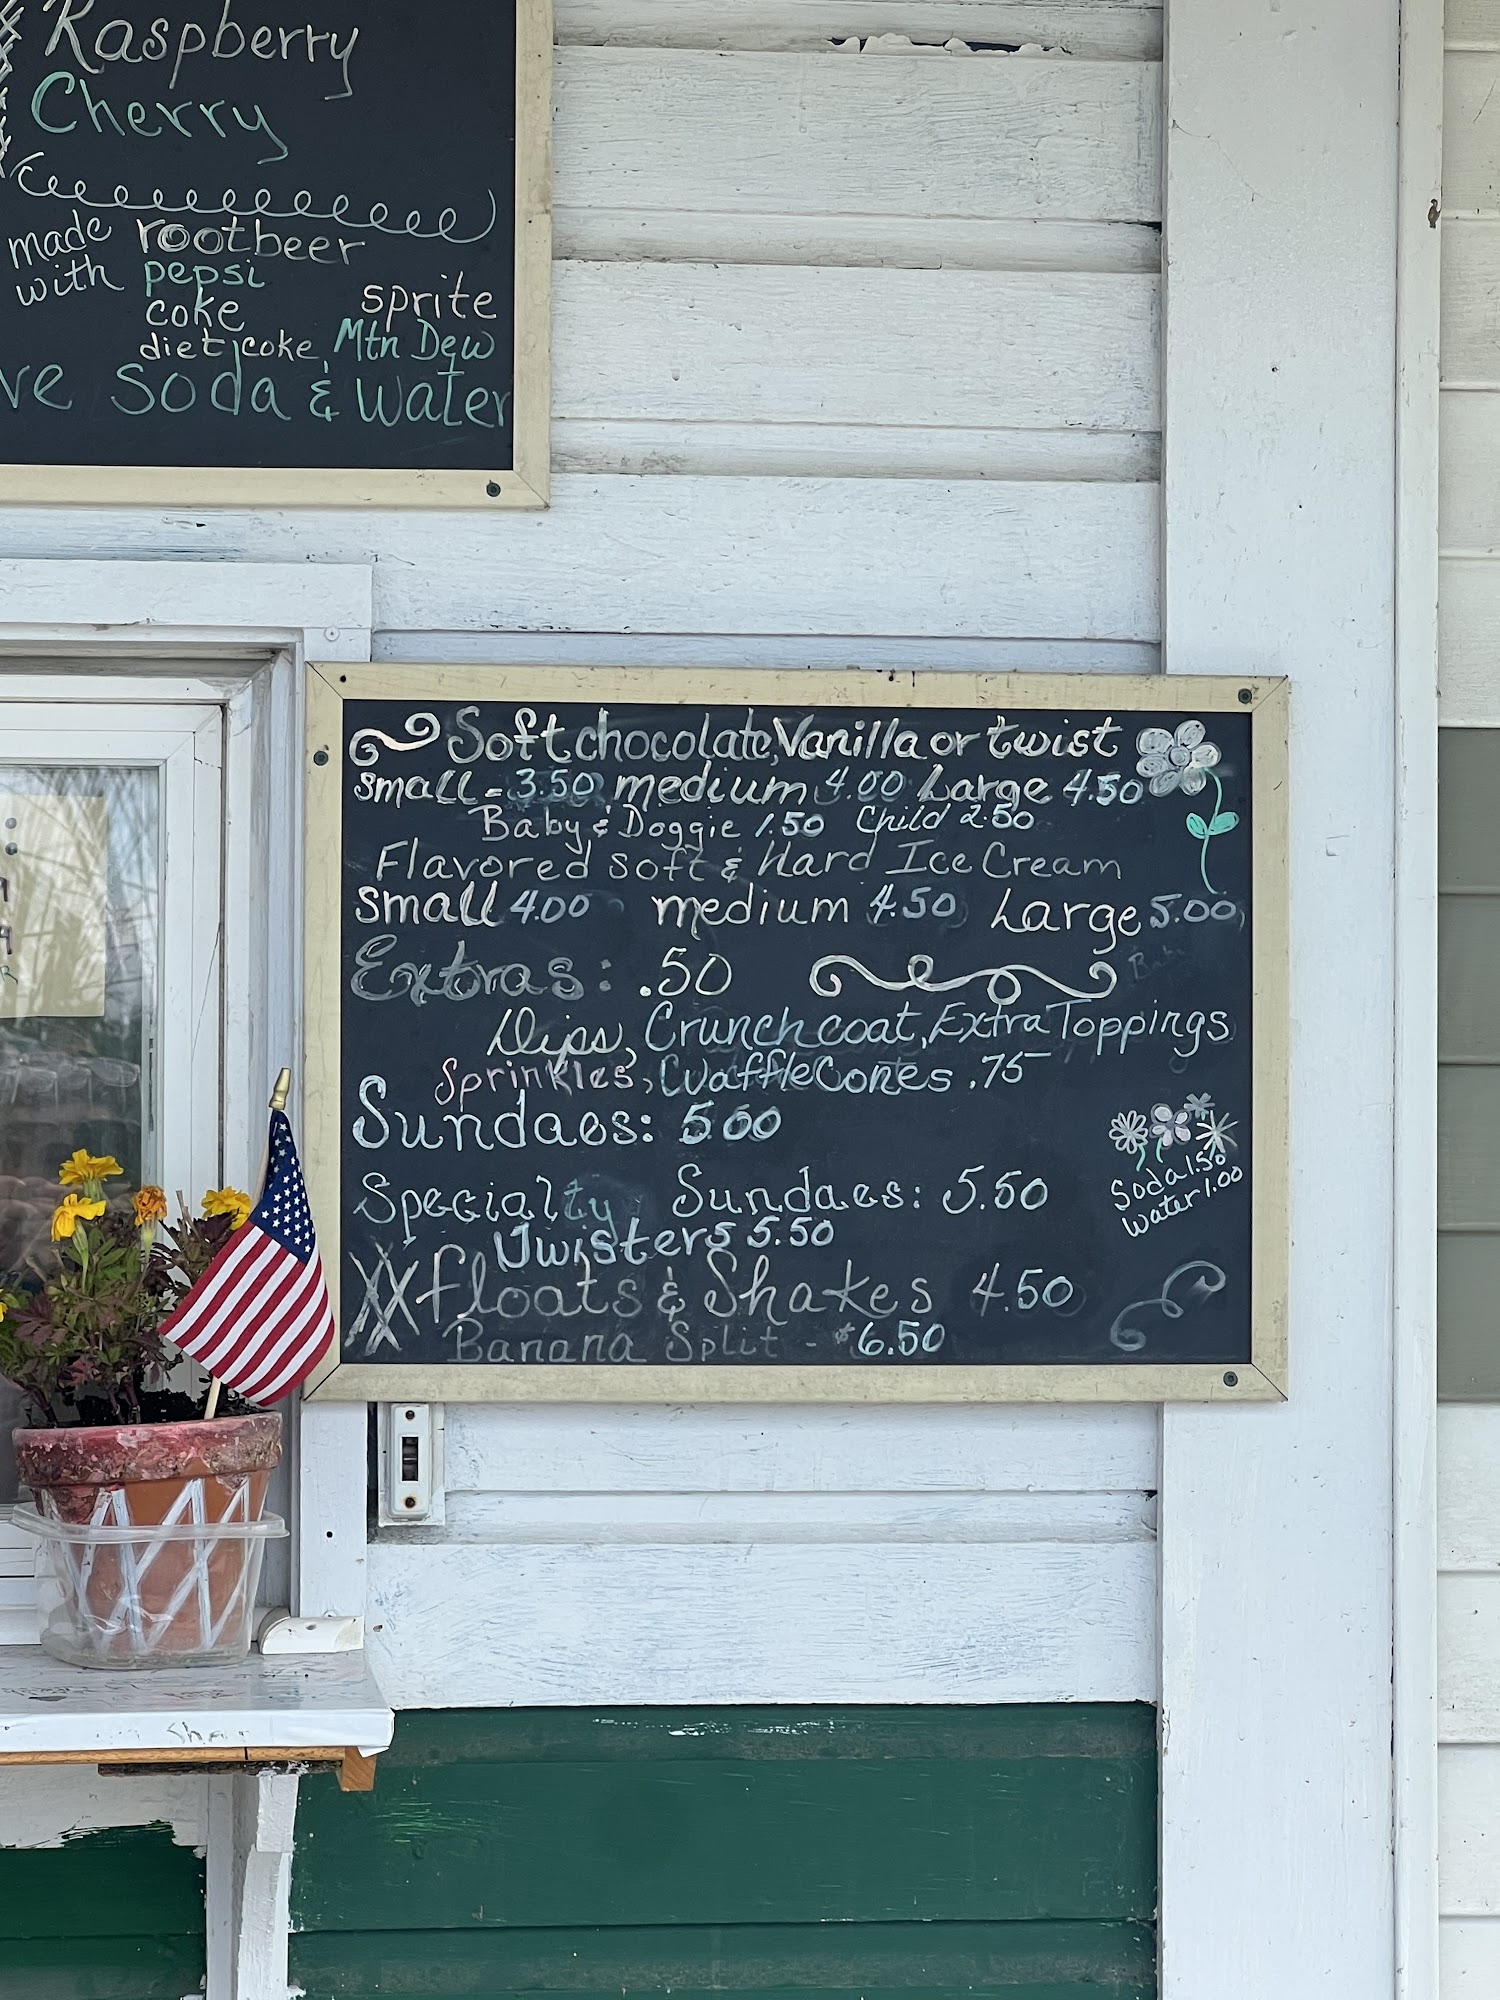 Raspberry
Cherry
made rootbeer
with pepsi
coke sprite
diet coke Mtn Dew
ve Soda & Water
Soft chocolate, Vanilla or twist
small - 3.50 medium 4.00 Large 4.50
Baby & Doggie 1.50 Child 2.50
Flavored soft & Hard Ice Cream
small 4.00 medium 4.50 Large 5.00
Extras: .50
Dips, Crunch coat, Extra Toppings
Sprinkles, Waffle Cones .75
Sundaes: 5.00
Specialty Sundaes: 5.50
Twisters 5.50
Soda 1.50
Water 1.00
floats & Shakes 4.50
Banana Split - $6.50